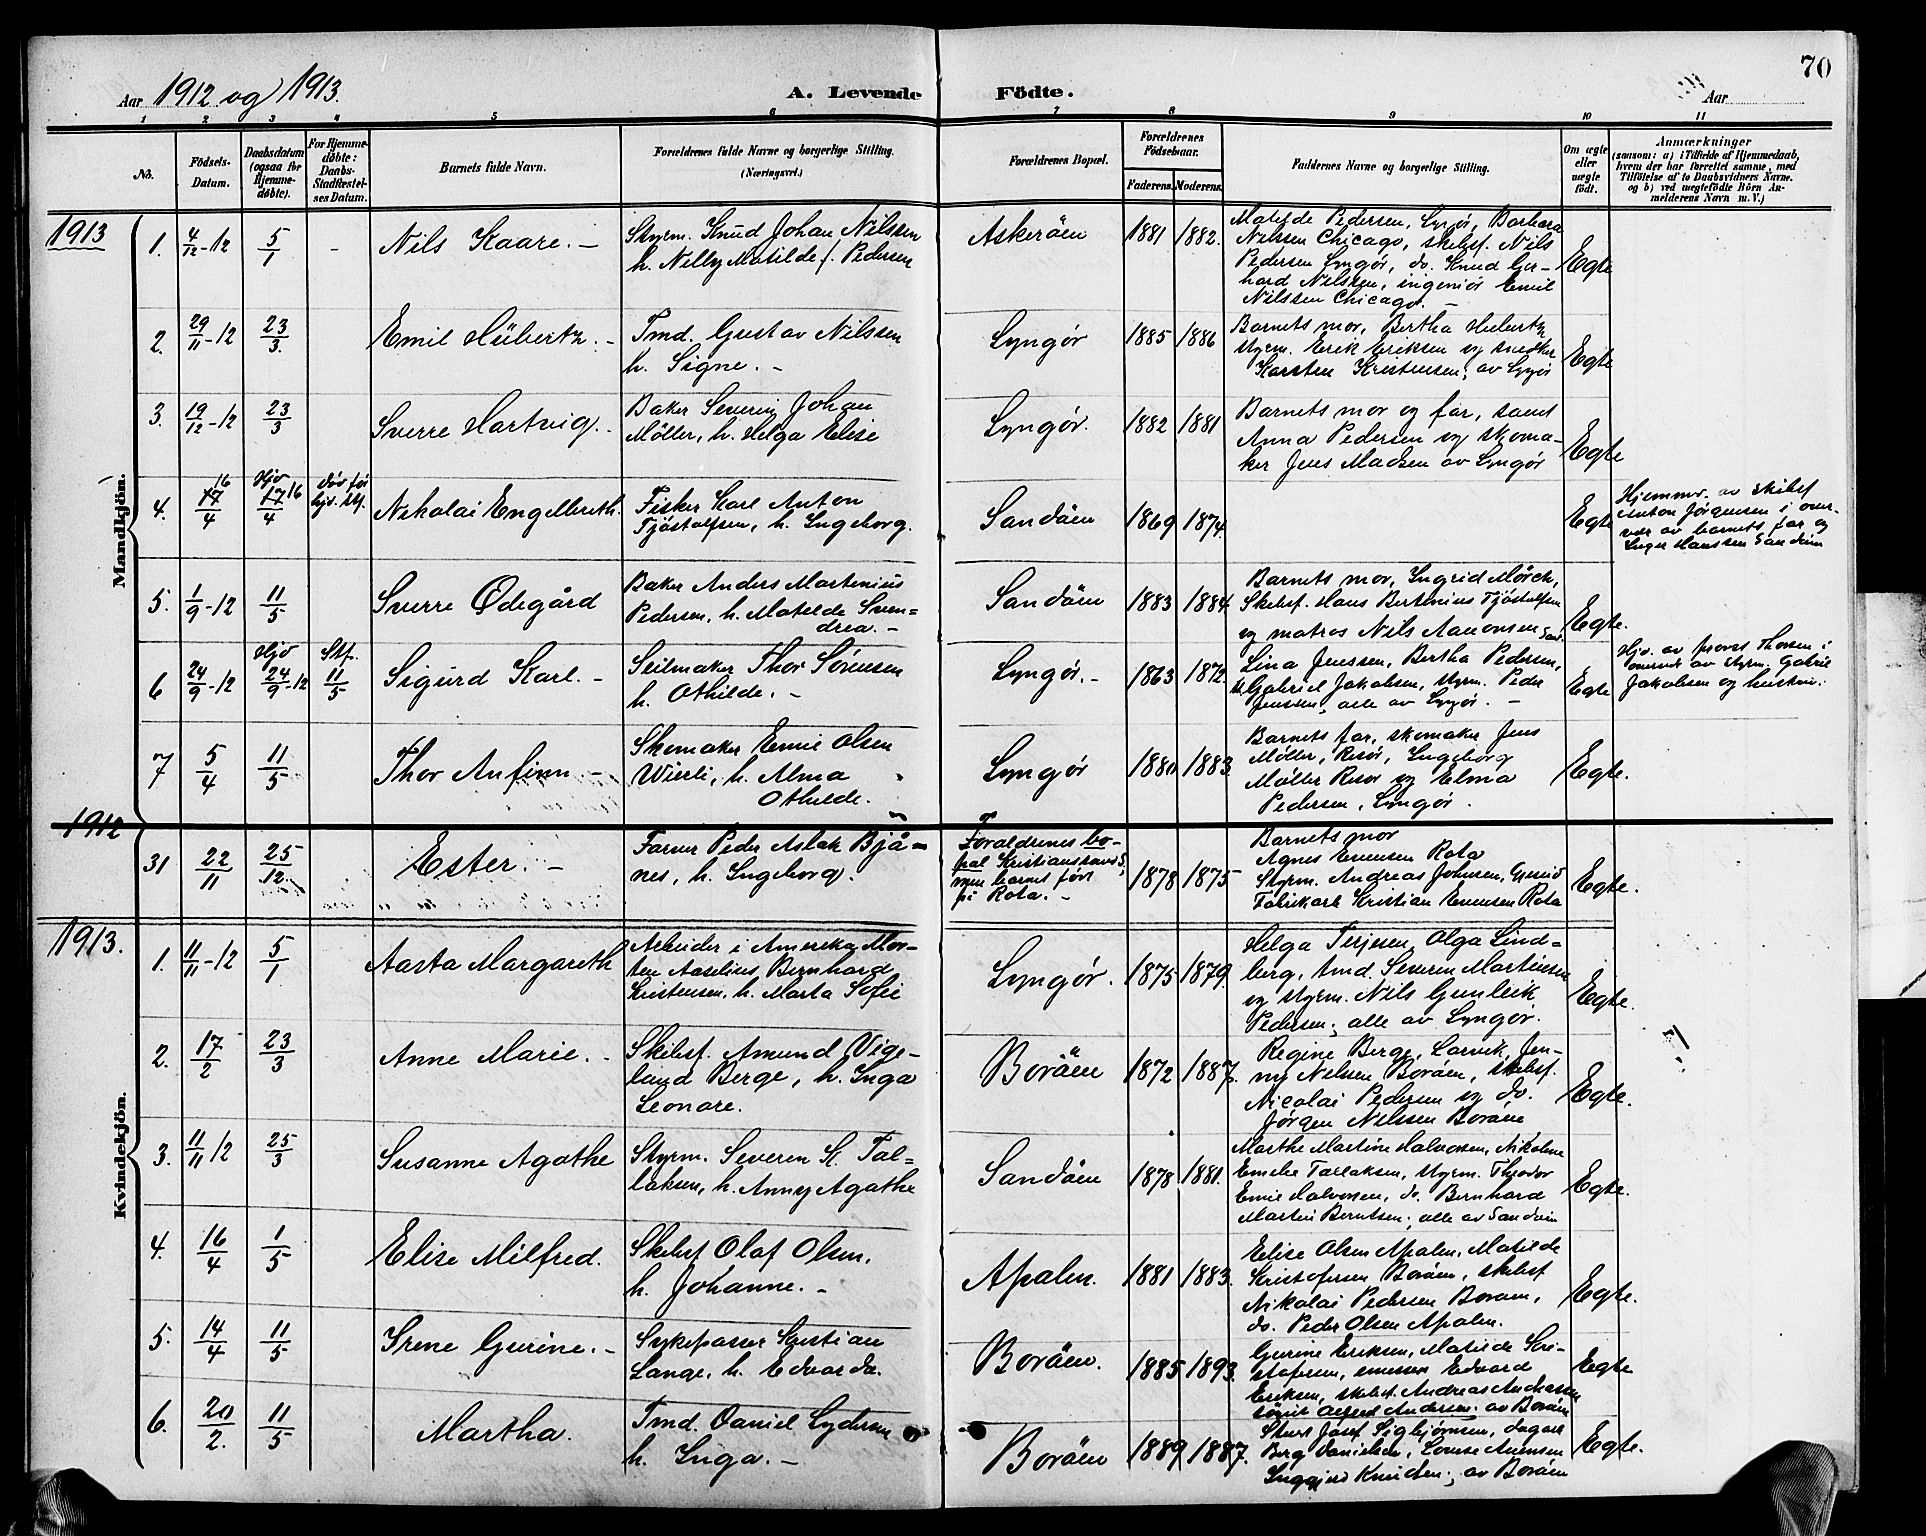 70
Aar 1912 og 1913.
A. Levende Födte.
Aar
1 2 3 4 5 6 7 8 9 10 11
No.
Födsels-
Datum.
Daabsdatum
(ogsaa for
Hjemme-
döbte).
For Hjemme-
döbte:
Daabs-
Stadfæstel-
ses Datum.
Barnets fulde Navn.
Forældrenes fulde Navne og borgerlige Stilling.
(Næringsvei.)
Forældrenes Bopæl.
Forældrenes
Födselsaar.
Faderens. Moderens.
Faddernes Navne og borgerlige Stilling.
Om ægte
eller
uægte
födt.
Anmærkninger
(saasom: a) i Tilfælde af Hjemmedaab,
hvem der har forrettet samme, med
Tilföielse af to Daabsvidners Navne.
og b) ved uægtefödte Börn An-
melderens Navn m. V.)
Mandkjön.
1913
1. 4/12-12 5/1 - Nils Kaare. -
Styrm. Knud Johan Nilssen
h. Nelly Matilde f. Pedersen
Askeröen 1881 1882.
Matilde Pedersen, Lyngör, Barbara
Nilssen Chicago, skibsf. Nils
Pedersen Lyngör, do. Knud Ger-
hard Nilssen, ingeniör Emil
Nilssen Chicago. -
Egte
2. 29/11-12 23/3. Emil Hübertz. -
Tmd. Gustav Nilssen
h. Signe. -
Lyngör 1885 1886
Barnets mor, Bertha Hubertz
styrm. Erik Eriksen og snedker
Karsten Kristensen, av Lyngör
Egte
3. 19/12-12 23/3 Sverre Hartvig. -
Baker Severin Johan
Möller, h. Helga Elise
Lyngör. 1882 1881
Barnets mor og far, samt
Anna Pedersen og skoma-
ker Jens Madsen av Lyngör
Egte
4. 16 17/4 Hjd 17 16/4 död för hjd. stf. Nikolai Engelbreth.
Fisker Karl Anton
Tjöstolfsen, h. Ingeborg.
Sandöen 1869 1874.
Egte
Hjemmed. av skibsf
Anton Jörgensen i over-
vær av barnets far og
Inger Hanssen Sandöen
5. 1/9-12 11/5 Sverre Ødegård
Baker Anders Martinius
Pedersen, h. Matilde Sven-
drea. -
Sandöen 1883 1884.
Barnets mor, Ingrid Mörch,
Skibsf. Hans Bertinius Tjöstolfsen
og matros Nils Aanonsen Sand.
Egte.
6 24/9-12 Hjd 24/9-12 Stf. 11/5 Sigurd Karl. -
Seilmaker Thor Sörensen
h. Othilde. -
Lyngör. - 1863 1872.
Lina Jenssen, Bertha Pedersen,
Gabriel Jakobsen, styrm. Peder
Jenssen, alle av Lyngör. -
Egte
Hjd. av provst Thorsen i
overvær av styrm. Gabriel
Jakobsen og hustru.
7 5/4 11/5 Thor Anfinn -
Skomaker Emil Olsen
Wierli, h. Alma
Othilde.
Lyngör 1880 1883
Barnets far, skomaker Jens
Möller, Risör, Ingeborg
Möller Risör og Elma
Pedersen, Lyngör.
Egte.
Kvindekjön.
1912
31 22/11 25/12. Ester. -
Farver Peder Aslak Bjå-
nes, h. Ingeborg.
Foraldrenes bo-
pæl Kristianssand S,
men barnet født
på Rota. -
1878 1875
Barnets mor
Agnes Evensen Rota
Styrm. Andreas Johnsen, Gjesund
Fabrikarb Kristian Evensen Rota
Egte.
1913.
1. 11/11-12 5/1 Aasta Margareth
Arbeider i Amerika Mor-
ten Aaselius Bernhard
Kristensen, h. Marta Sofie
Lyngör. 1875 1879.
Helga Terjesen, Olga Lind-
berg, tmd. Severin Martinsen
og styrm. Nils Gunleik
Pedersen, alle av Lyngör.
Egte.
2. 17/2 23/3 Anne Marie. -
Skibsf. Amund Vige-
land Berge, h. Inga
Leonore.
Boröen 1872 1887.
Regine Berge, Larvik, Jen-
ny Nilssen Boröen, skibsf.
Nicolai Pedersen og do.
Jörgen Nilssen Boröen
Egte.
3. 11/11 12 25/3 Susanne Agathe
Styrm. Severin K. Tal-
laksen, h. Anny Agathe
Sandöen 1878 1881.
Marthe Martine Halvorsen, Nikoline
Emelie Tarlaksen, styrm. Theodor
Emil Halvorsen, do. Bernhard
Martin Berntsen, alle av Sandöen
Egte.
4. 16/4 1/5 Elise Milfred.
Skibsf Olaf Olsen,
h. Johanne. -
Apalen. 1881 1883.
Elise Olsen Apalen, Matilde
Kristofersen Boröen, skibsf
Nikolai Pedersen Boröen,
do. Peder Olsen Apalen.
Egte.
5. 14/4 11/5 Irene Gurine. -
Sykepasser Kristian
Lange, h. Edvarda.
Boröen. 1885 1893.
Gurine Eriksen, Matilde Kri-
stofersen, Edvard
Eriksen, skibsf. Andreas Andreassen
Alfred Andersen. av Boröen
Egte
6. 20/2. 11/5 Martha.
Tmd. Daniel Lydersen
h. Inga. -
Boröen 1889 1887.
Sturt Josef Sigbjörnsen, Dagne
Berg Danielsen, Lovise Aanensen
Ingejerd Knudsen, av Boröen
Egte.